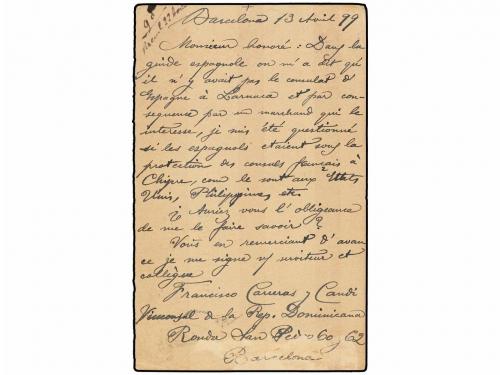 Barcelona 13 Avril 99
Monsieur honoré: Dans la
guide espagnole on m'a dit qu'
il n'y avait pas le consulat d'
Espagne à Larnaca et par con-
sequense par un marchand qui le
interesse, je suis été questionné
si les espagnols etaient sous la
protection des consuls français à
Chipre, com le sont aux Etats
Unis, Philippines, etc.
Auriez vous l'obligeance
de me le faire savoir?
Vous en remerciant d'avan
ce je me signe v/ et
collègue
Francisco Carreras y Candi
Viceconsul de la Rep. Dominicana
Ronda San Pedro 60 y 62
Barcelona